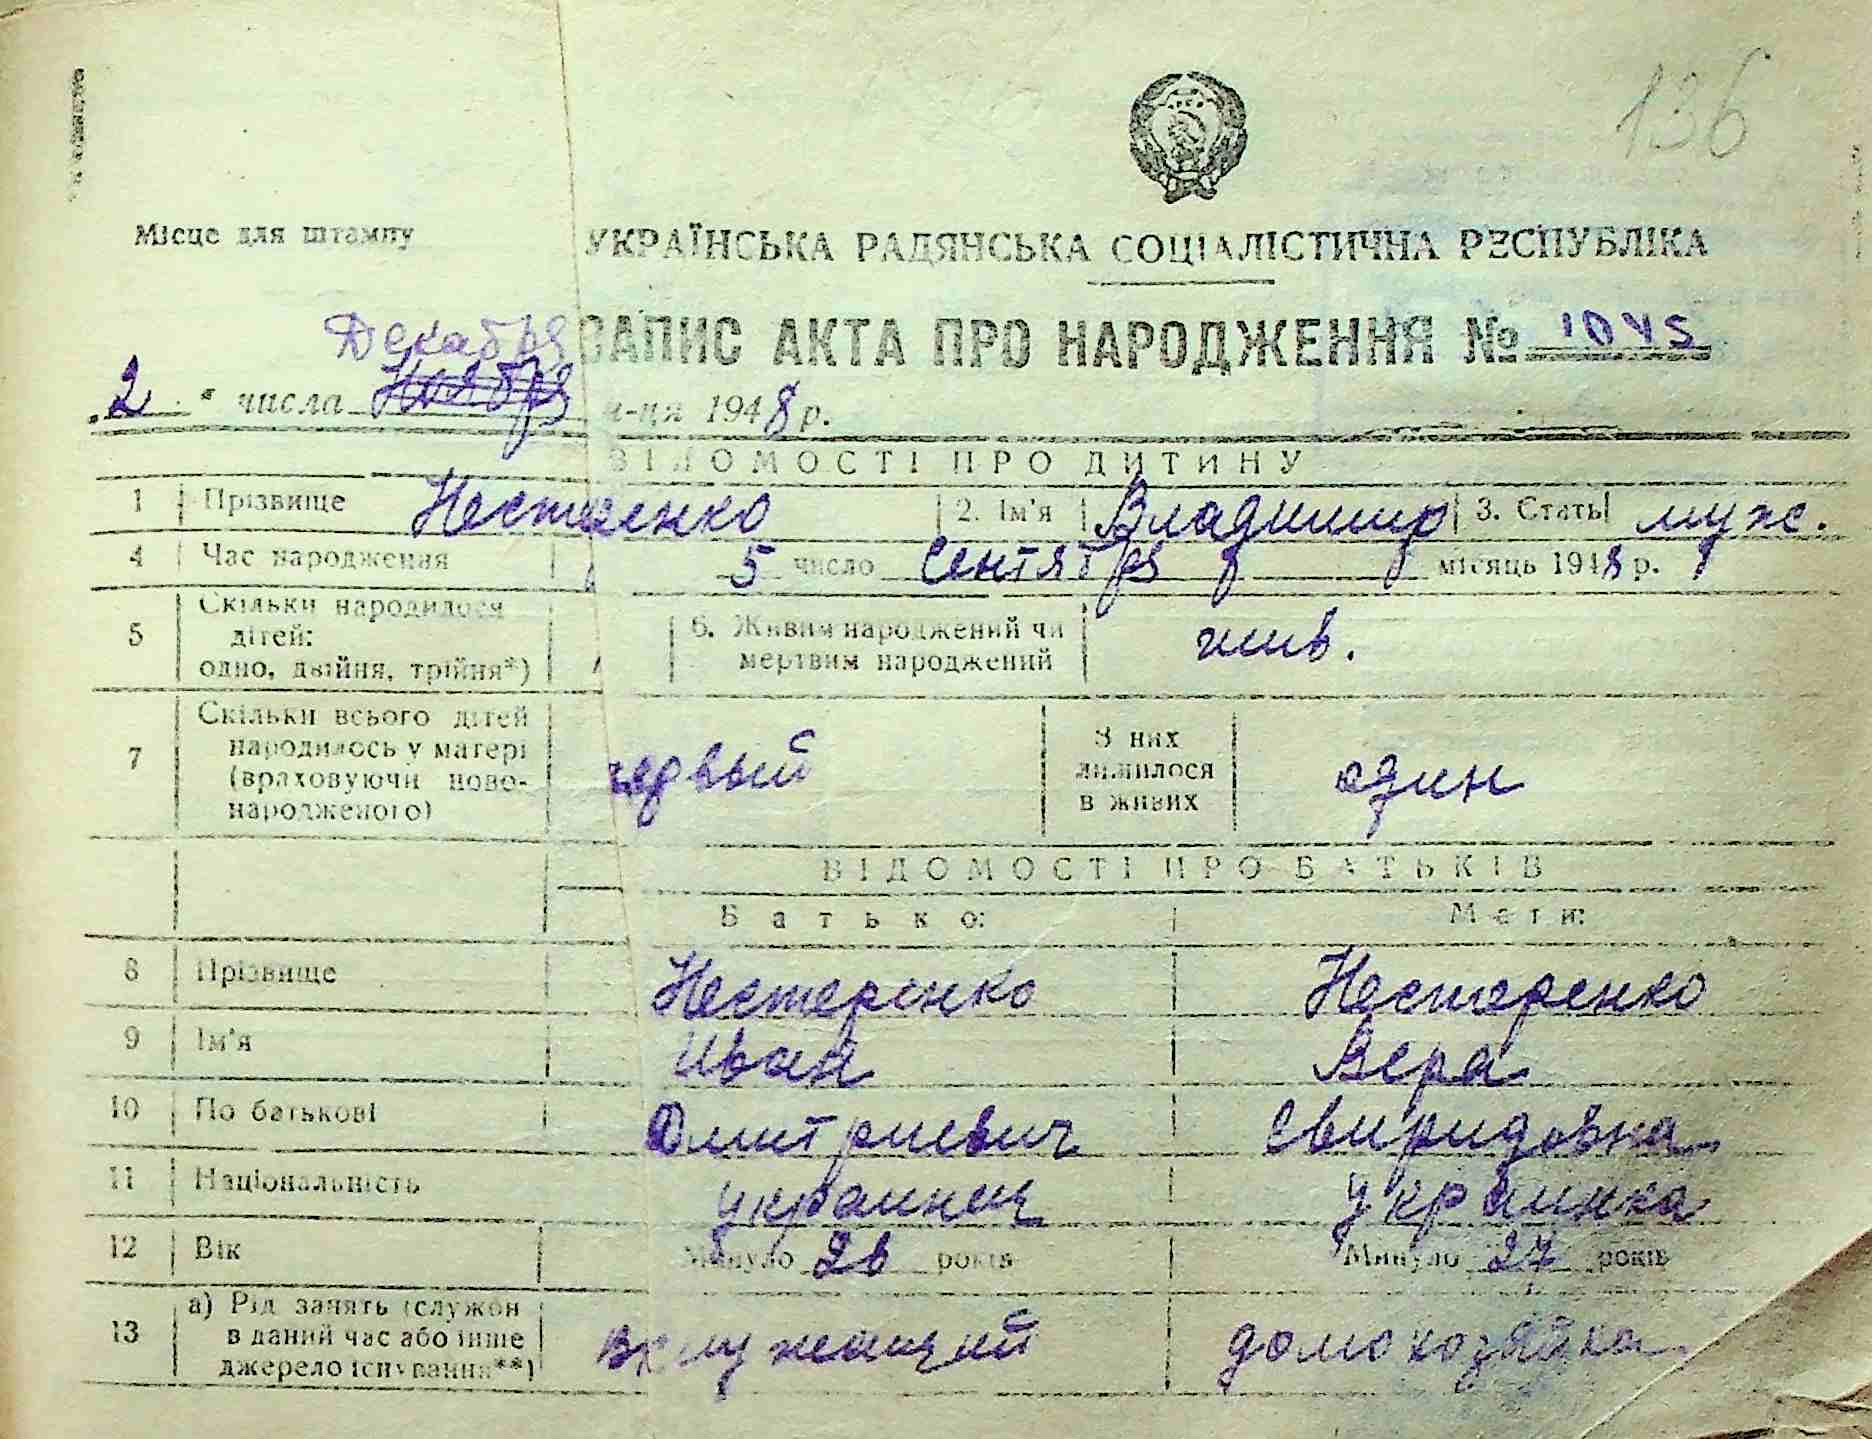 136
Місце для штампу
УКРАЇНСЬКА РАДЯНСЬКА СОЦІАЛІСТИЧНА РЕСПУБЛІКА
ЗАПИС АКТА ПРО НАРОДЖЕННЯ № 1045
Декабря
„2“ числа Ноября м-ця 1948 р.
ВІДОМОСТІ ПРО ДИТИНУ
1 Прізвище Нестеренко 2. Ім'я Владимир 3. Стать муж.
4 Час народження 5 число Сентября місяць 1948 р.
5 Скільки народилося
дітей:
одно, двійня, трійня*)
6. Живим народжений чи
мертвим народжений
жив.
7 Скільки всього дітей
народилось у матері
(враховуючи ново-
народженого)
первый
З них
лишилося
в живих
один
ВІДОМОСТІ ПРО БАТЬКІВ
Батько: Мати:
8 Прізвище Нестеренко Нестеренко
9 Ім'я Иван Вера
10 По батькові Дмитриевич Свиридовна
11 Національність украинец украинка
12 Вік Минуло 26 років Минуло 27 років
13 а) Рід занять (служби
в даний час або інше
джерело існування**)
домохозяйка